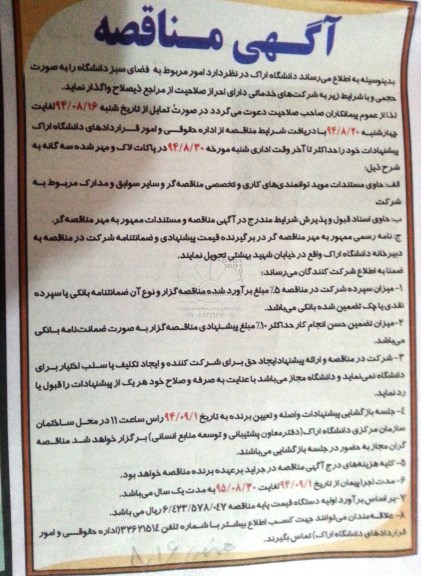 آگهی مناقصه
بدینوسیله به اطلاع می‌رساند دانشگاه اراک در نظر دارد امور مربوط به فضای سبز دانشگاه را به صورت
حجمی و با شرایط زیر به شرکت‌های خدماتی دارای احراز صلاحیت از مراجع ذیصلاح واگذار نماید.
لذا از عموم پیمانکاران صاحب صلاحیت دعوت می‌گردد در صورت تمایل از تاریخ شنبه ۹۴/۰۸/۱۶ لغایت
چهارشنبه ۹۴/۸/۲۰ با دریافت شرایط مناقصه از اداره حقوقی و امور قراردادهای دانشگاه اراک
پیشنهادات خود را حداکثر تا آخر وقت اداری شنبه مورخه ۹۴/۸/۳۰ در پاکات لاک و مهر شده سه گانه به
شرح ذیل:
الف: حاوی مستندات موید توانمندی‌های کاری و تخصصی مناقصه‌گر و سایر سوابق و مدارک مربوط به
شرکت
ب: حاوی اسناد قبول و پذیرش شرایط مندرج در آگهی مناقصه و مستندات ممهور به مهر مناقصه‌گر.
ج: نامه رسمی ممهور به مهر مناقصه گر در بر گیرنده قیمت پیشنهادی و ضمانتنامه شرکت در مناقصه به
دبیرخانه دانشگاه اراک واقع در خیابان شهید بهشتی تحویل نمایند.
ضمنا به اطلاع شرکت کنندگان می‌رساند:
۱- میزان سپرده شرکت در مناقصه ۵٪ مبلغ برآورد شده مناقصه گزار و نوع آن ضمانتنامه بانکی یا سپرده
نقدی یا چک تضمین شده بانکی می‌باشد.
۲- میزان تضمین حسن انجام کار حداکثر ۱۰٪ مبلغ پیشنهادی مناقصه گزار به صورت ضمانت‌نامه بانکی
می‌باشد.
۳- شرکت در مناقصه و ارائه پیشنهاد ایجاد حق برای شرکت کننده و ایجاد تکلیف یا سلب اختیار برای
دانشگاه نمی‌نماید و دانشگاه مجاز می‌باشد با عنایت به صرفه و صلاح خود هر یک از پیشنهادات را قبول یا
رد نماید.
۴- جلسه بازگشایی پیشنهادات واصله و تعیین برنده به تاریخ ۹۴/۰۹/۱ راس ساعت ۱۱ در محل ساختمان
سازمان مرکزی دانشگاه اراک (دفتر معاون پشتیبانی و توسعه منابع انسانی) برگزار خواهد شد مناقصه
گران مجاز به حضور در جلسه بازگشایی می‌باشند.
۵- کلیه هزینه‌های درج آگهی مناقصه در جراید بر عهده برنده مناقصه خواهد بود.
۶- مدت اجرا پیمان از تاریخ ۹۴/۰۹/۱ لغایت ۹۵/۰۸/۳۰ به مدت یک سال می‌باشد.
۷- بر اساس برآورد اولیه دستگاه قیمت پایه مناقصه ۶/۴۲۳/۵۷۸/۰۴۷ ریال می باشد.
۸- علاقه‌مندان می‌توانند جهت کسب اطلاع بیشتر با شماره تلفن ۳۲۶۲۱۵۱۴ (اداره حقوقی و امور
قراردادهای دانشگاه اراک) تماس بگیرند.
۸,۱۶